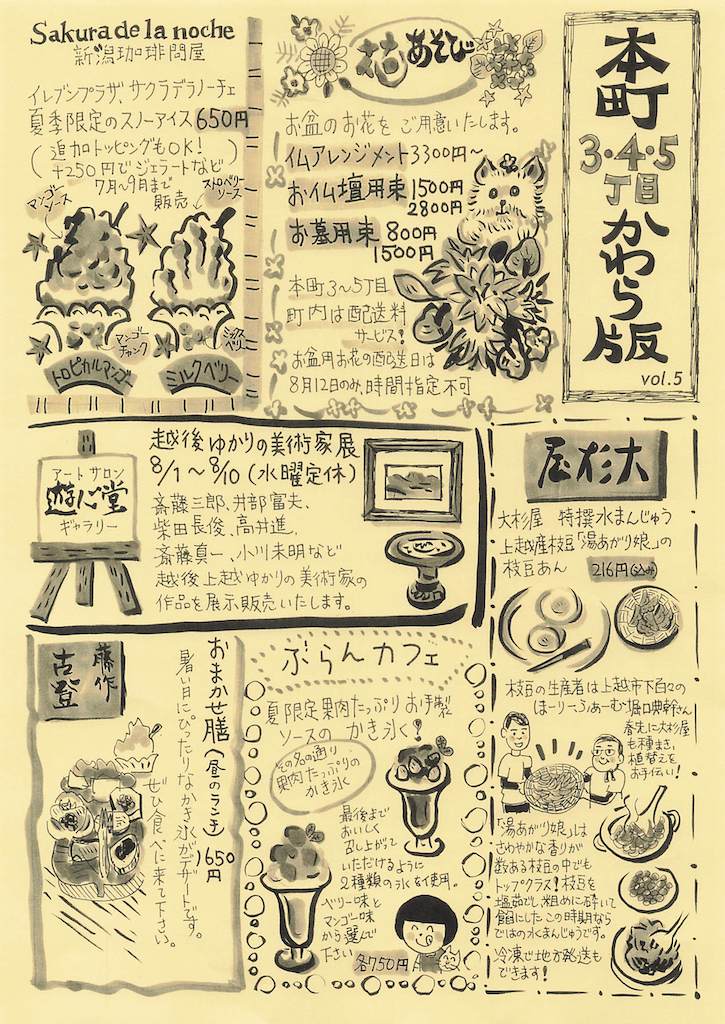 本町
3・4・5
丁目
かわら版
vol.5
Sakura de la noche
新潟珈琲問屋
イレブンプラザ、サクラデラノーチェ
夏季限定のスノーアイス 650円
(追加トッピングもOK!
+250円でジェラートなど)
7月〜9月まで
販売
マンゴー
ソース
ストロベリー
ソース
マンゴー
チャンク
ミックス
ベリー
トロピカルマンゴー
ミルクベリー
花あそび
お盆のお花をご用意いたします。
仏アレンジメント3300円〜
お仏壇用束 1500円
2800円
お墓用束 800円
1500円
本町3〜5丁目
町内は配送料
サービス!
お盆用お花の配送日は
8月12日のみ、時間指定不可
アートサロン
遊心堂
ギャラリー
越後ゆかりの美術家展
8/1〜8/10(水曜定休)
斎藤三郎、井部富夫、
柴田長俊、高井進、
斎藤真一、小川未明など
越後上越ゆかりの美術家の
作品を展示販売いたします。
大杉屋
大杉屋 特撰水まんじゅう
上越産枝豆「湯あがり娘」の
枝豆あん 216円(込み)
枝豆の生産者は上越市下百々の
ほーりーふぁーむ・堀口典幹さん
春先に大杉屋
も種まき、
植替えを
お手伝い!
「湯あがり娘」は
さわやかな香りが
数ある枝豆の中でも
トップクラス!枝豆を
塩茹でし、粗めに砕いて
餡にしたこの時期なら
ではの水まんじゅうです。
冷凍で地方発送も
できます!
藤作
古登
おまかせ膳(昼のランチ)1650円
暑い日にぴったりなかき氷がデザートです。
ぜひ食べに来て下さい。
ぶらんカフェ
夏限定果肉たっぷりお手製
ソースのかき氷!
その名の通り
果肉たっぷりの
かき氷
最後まで
おいしく
召し上がって
いただけるように
2種類の氷を使用。
ベリー味と
マンゴー味
から選んで
下さい
各750円